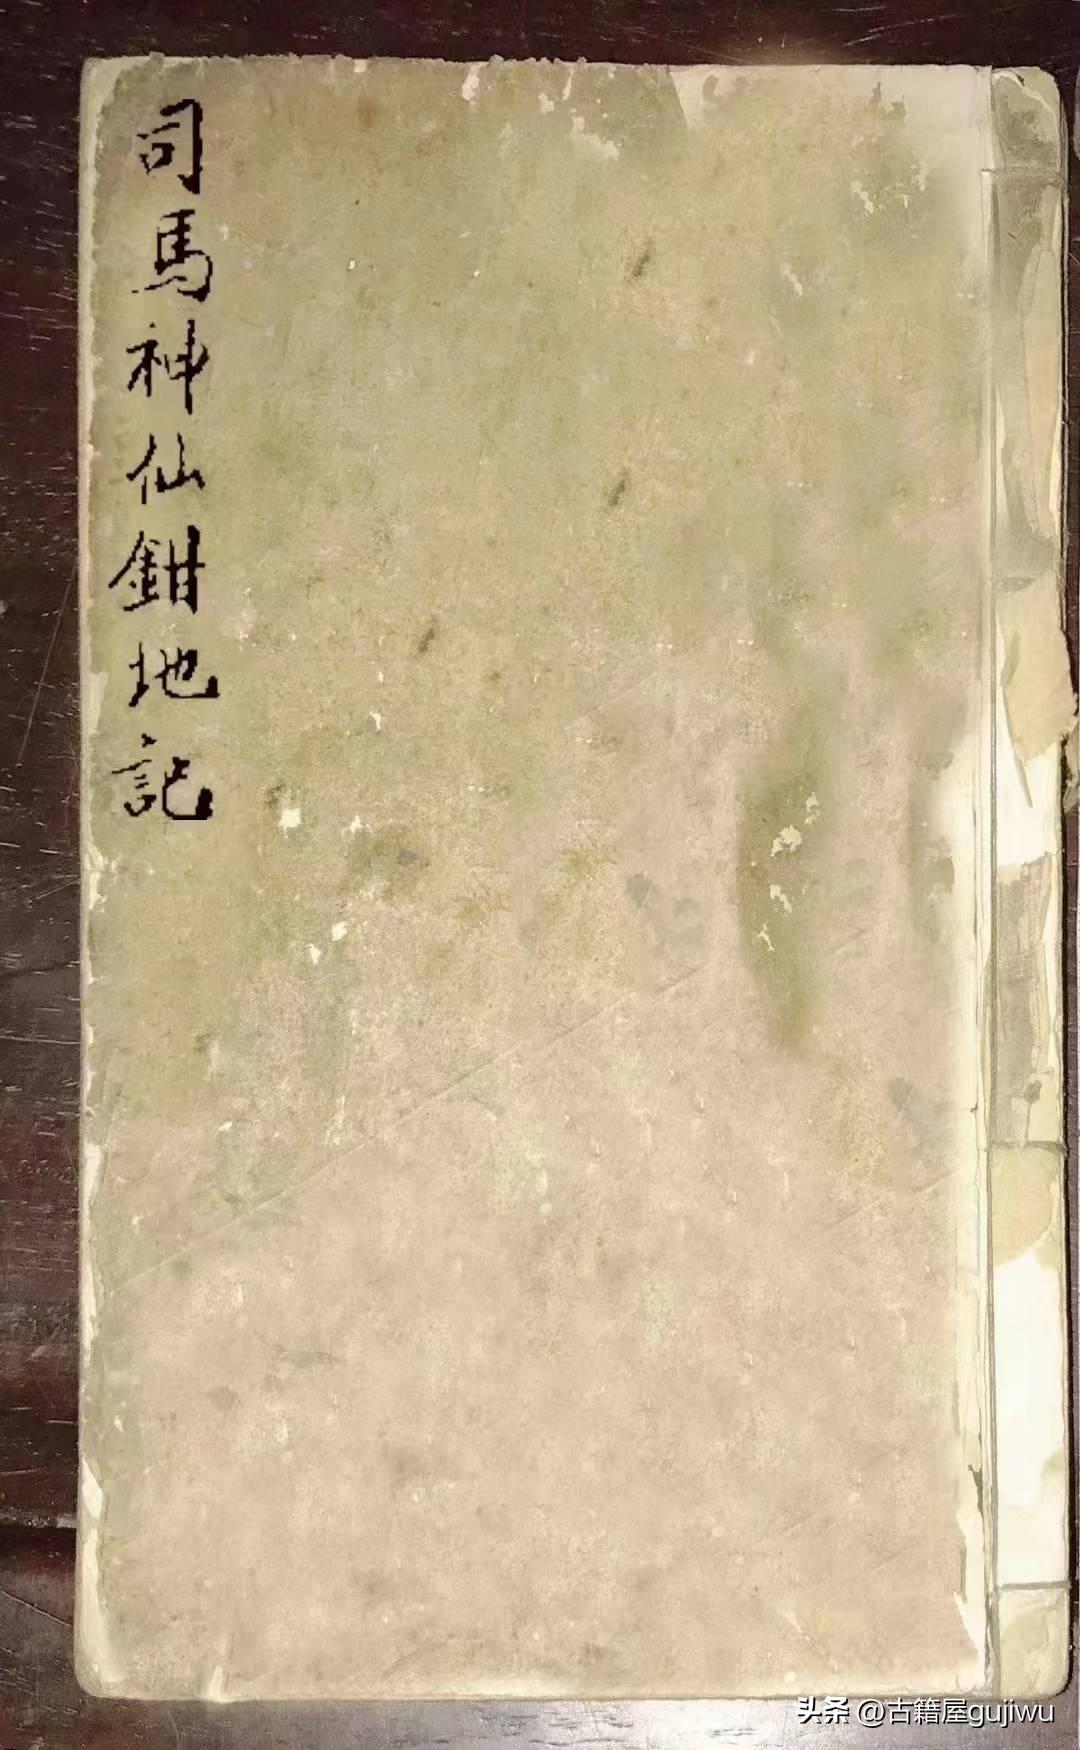 司馬神仙鉗地記
头条 @古籍屋gujiwu